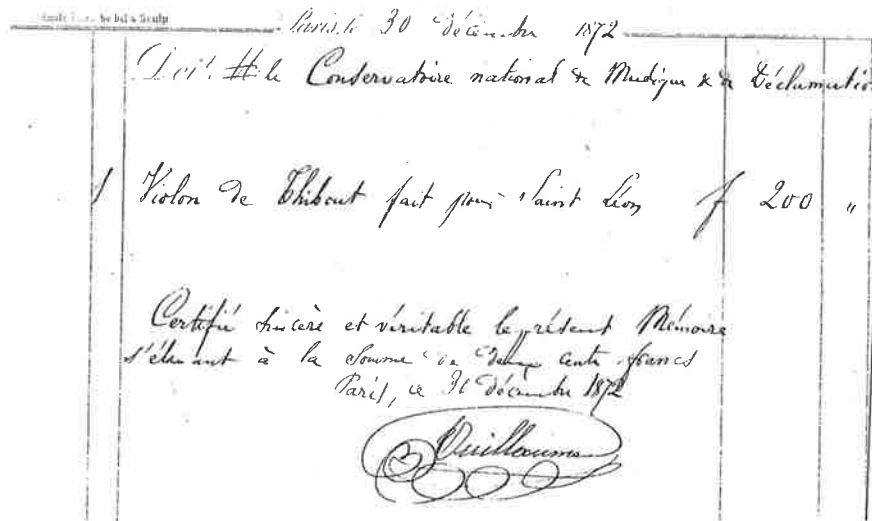 Paris, le 30 décembre 1872
Doit le Conservatoire national de Musique & de Déclamation
1 Violon de Thibout fait pour Saint Léon f 200 "
Certifié sincère et véritable le présent Mémoire
s'élevant à la somme de deux cents francs
Paris, ce 30 décembre 1872
Vuillaume